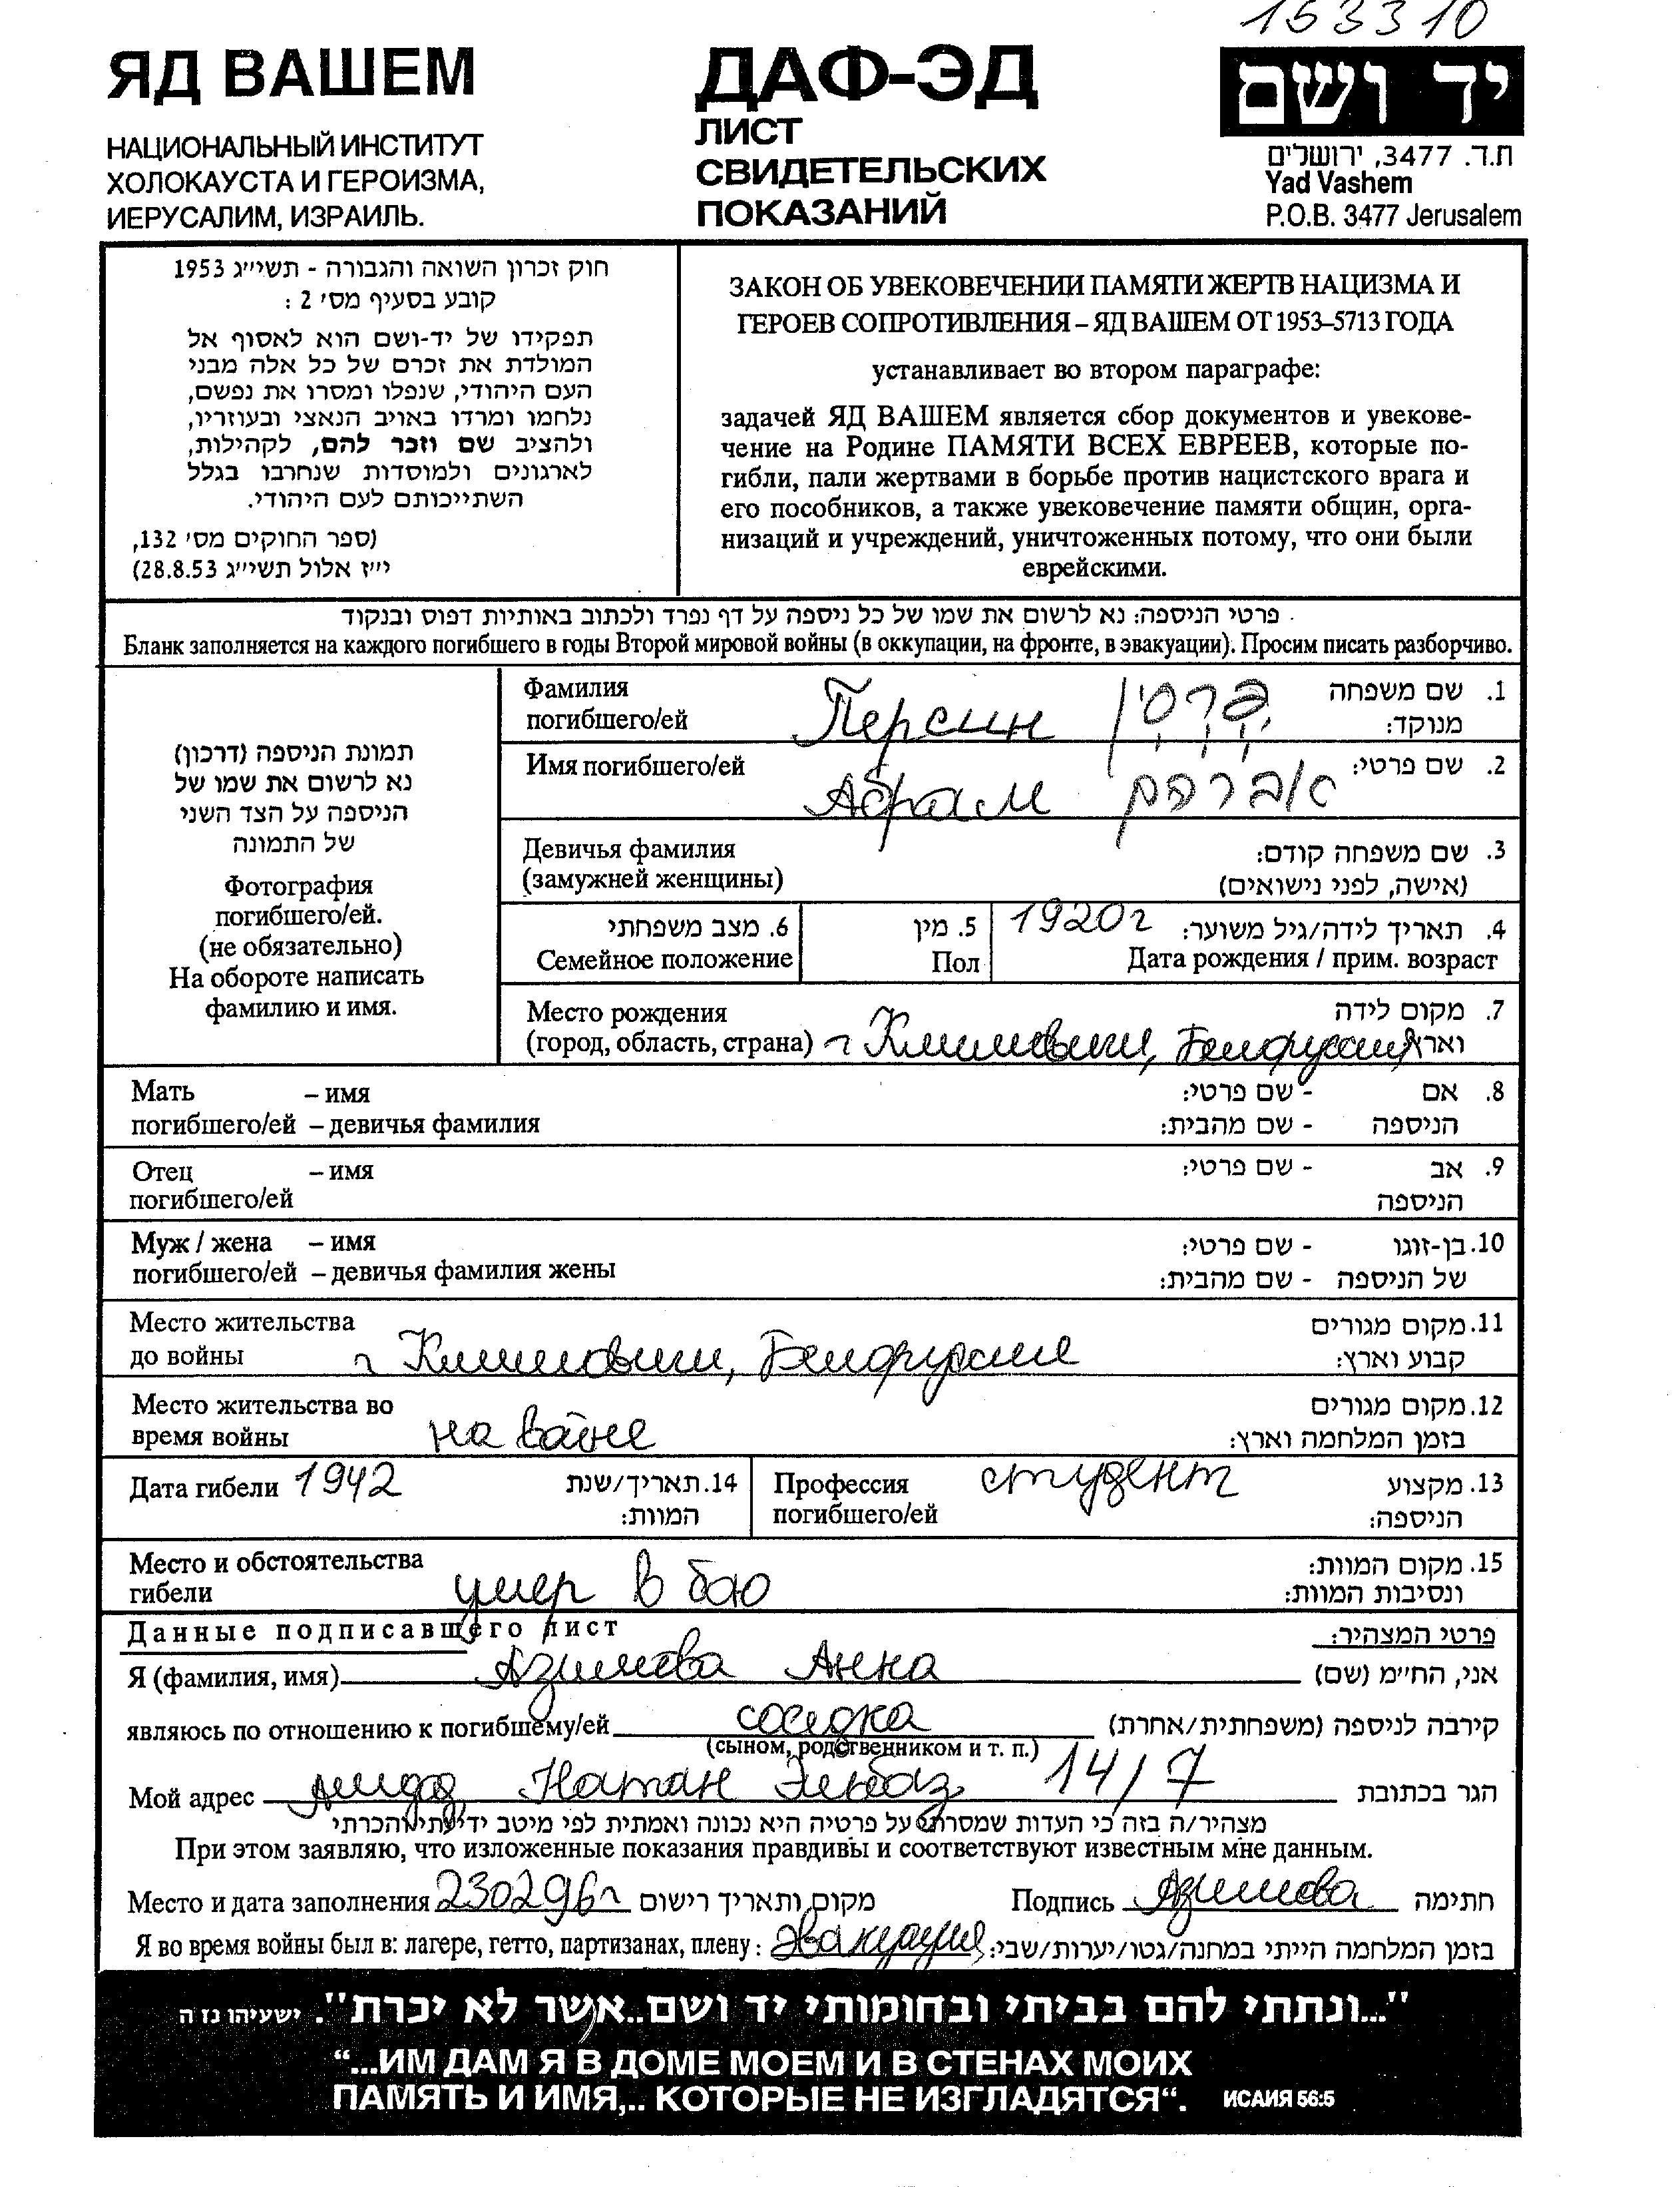 153310
ЯД ВАШЕМ
НАЦИОНАЛЬНЫЙ ИНСТИТУТ
ХОЛОКАУСТА И ГЕРОИЗМА,
ИЕРУСАЛИМ, ИЗРАИЛЬ.
ДАФ-ЭД
ЛИСТ
СВИДЕТЕЛЬСКИХ
ПОКАЗАНИЙ
יד ושם
ת.ד. 3477, ירושלים
Yad Vashem
P.O.B. 3477 Jerusalem
חוק זכרון השואה והגבורה - תשי״ג 1953
קובע בסעיף מס׳ 2 :
תפקידו של יד-ושם הוא לאסוף אל
המולדת את זכרם של כל אלה מבני
העם היהודי, שנפלו ומסרו את נפשם,
נלחמו ומרדו באויב הנאצי ובעוזריו,
ולהציב שם וזכר להם, לקהילות,
לארגונים ולמוסדות שנחרבו בגלל
השתייכותם לעם היהודי.
(ספר החוקים מס׳ 132,
י״ז אלול תשי״ג 28.8.53)
ЗАКОН ОБ УВЕКОВЕЧЕНИИ ПАМЯТИ ЖЕРТВ НАЦИЗМА И
ГЕРОЕВ СОПРОТИВЛЕНИЯ – ЯД ВАШЕМ ОТ 1953–5713 ГОДА
устанавливает во втором параграфе:
задачей ЯД ВАШЕМ является сбор документов и увекове-
чение на Родине ПАМЯТИ ВСЕХ ЕВРЕЕВ, которые по-
гибли, пали жертвами в борьбе против нацистского врага и
его пособников, а также увековечение памяти общин, орга-
низаций и учреждений, уничтоженных потому, что они были
еврейскими.
פרטי הניספה: נא לרשום את שמו של כל ניספה על דף נפרד ולכתוב באותיות דפוס ובנקוד
Бланк заполняется на каждого погибшего в годы Второй мировой войны (в оккупации, на фронте, в эвакуации). Просим писать разборчиво.
תמונת הניספה (דרכון)
נא לרשום את שמו של
הניספה על הצד השני
של התמונה
Фотография
погибшего/ей.
(не обязательно)
На обороте написать
фамилию и имя.
Фамилия погибшего/ей Персин פרסין 1. שם משפחה מנוקד:
Имя погибшего/ей Абрам אברהם 2. שם פרטי:
Девичья фамилия 3. שם משפחה קודם:
(замужней женщины) (אישה, לפני נישואים)
6. מצב משפחתי 5. מין 1920г 4. תאריך לידה/גיל משוער:
Семейное положение Пол Дата рождения / прим. возраст
Место рождения 7. מקום לידה
(город, область, страна) г Климовичи, Белоруссия וארץ
Мать – имя 8. אם - שם פרטי:
погибшего/ей – девичья фамилия הניספה - שם מהבית:
Отец – имя 9. אב - שם פרטי:
погибшего/ей הניספה
Муж / жена – имя 10. בן-זוגו - שם פרטי:
погибшего/ей – девичья фамилия жены של הניספה - שם מהבית:
Место жительства 11. מקום מגורים
до войны г Климовичи, Белоруссия קבוע וארץ:
Место жительства во 12. מקום מגורים
время войны на войне בזמן המלחמה וארץ:
Дата гибели 1942 14. תאריך/שנת המוות:
Профессия погибшего/ей студент 13. מקצוע הניספה:
Место и обстоятельства 15. מקום המוות:
гибели умер в бою ונסיבות המוות:
Данные подписавшего лист פרטי המצהיר:
Я (фамилия, имя) Азимова Анна אני, הח״מ (שם)
являюсь по отношению к погибшему/ей соседка קירבה לניספה (משפחתית/אחרת)
(сыном, родственником и т. п.)
Мой адрес Ашдод Натан Эльбаз 14/7 הגר בכתובת
מצהיר/ה בזה כי העדות שמסרתי על פרטיה היא נכונה ואמתית לפי מיטב ידיעתי והכרתי
При этом заявляю, что изложенные показания правдивы и соответствуют известным мне данным.
Место и дата заполнения 230296г מקום ותאריך רישום Подпись Азимова חתימה
Я во время войны был в: лагере, гетто, партизанах, плену: Эвакуация בזמן המלחמה הייתי במחנה/גטו/יערות/שבי:
"...ונתתי להם בביתי ובחומותי יד ושם..אשר לא יכרת". ישעיהו נז ה
“...ИМ ДАМ Я В ДОМЕ МОЕМ И В СТЕНАХ МОИХ
ПАМЯТЬ И ИМЯ,.. КОТОРЫЕ НЕ ИЗГЛАДЯТСЯ“. ИСАИЯ 56:5